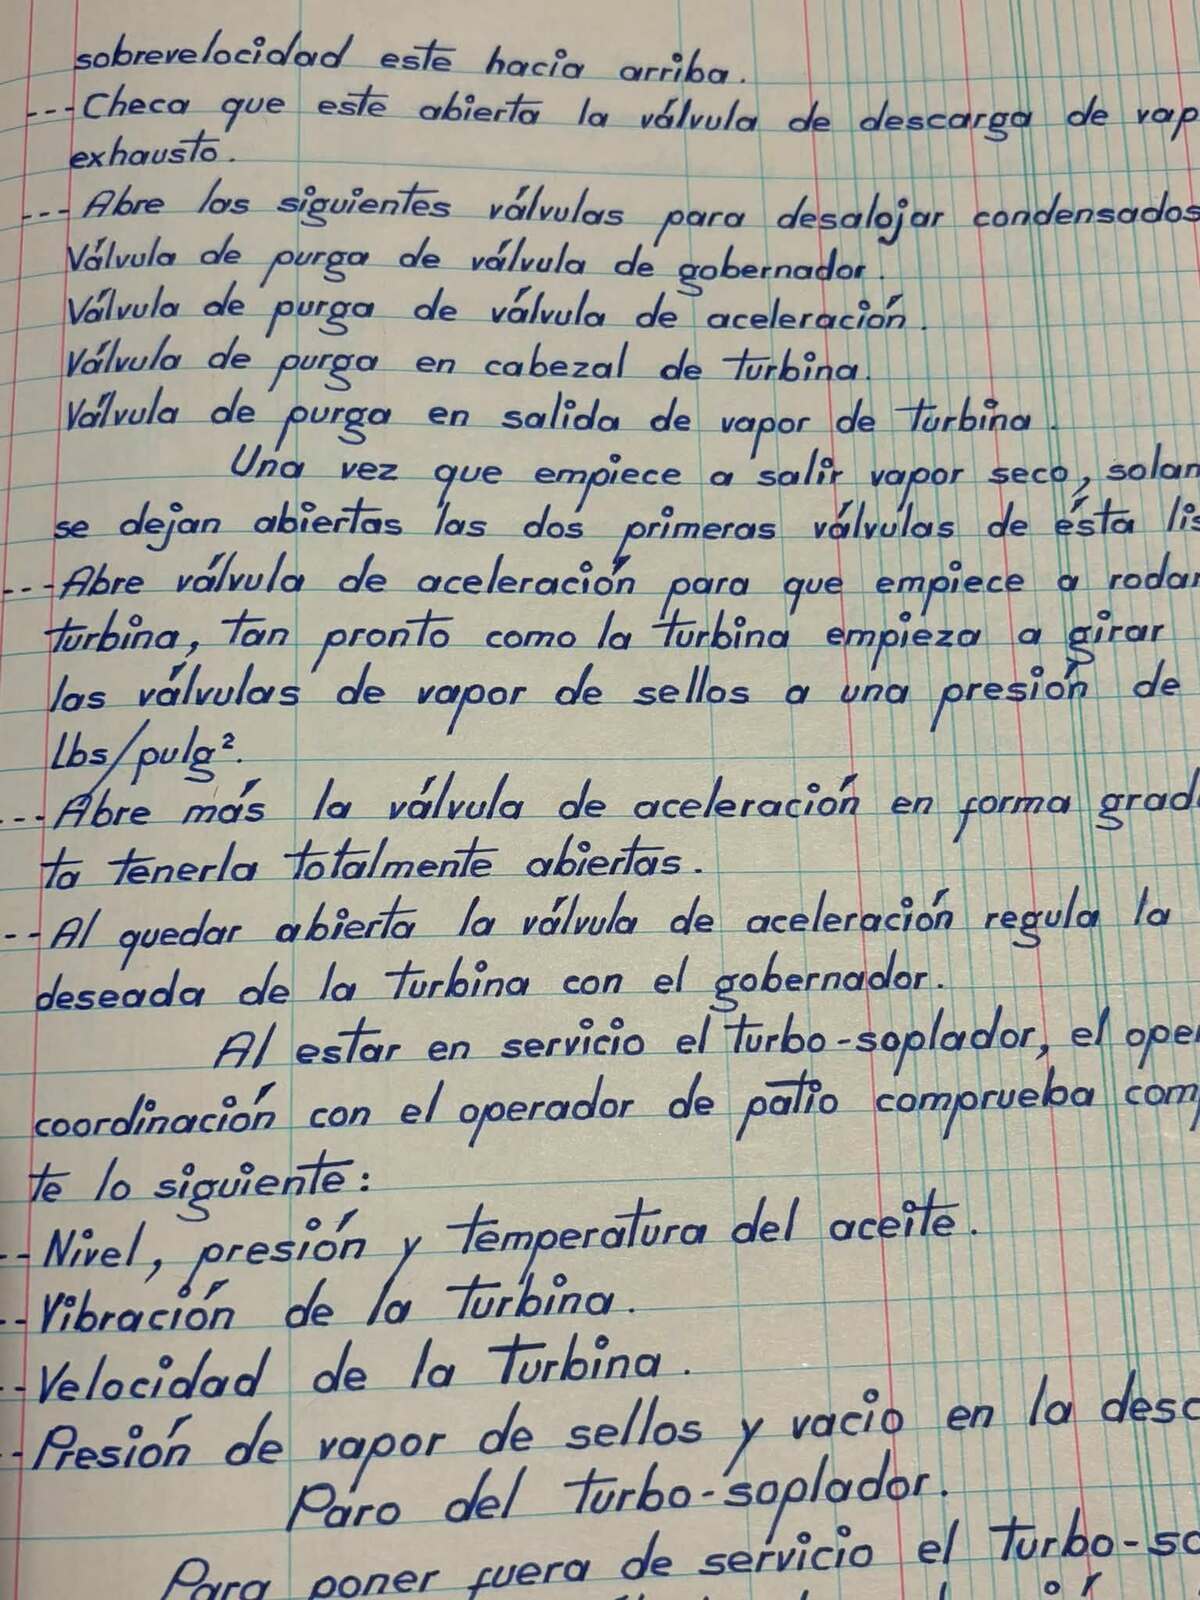 sobrevelocidad este hacia arriba.
---Checa que este abierta la válvula de descarga de vap
exhausto.
---Abre las siguientes válvulas para desalojar condensados
Válvula de purga de válvula de gobernador.
Válvula de purga de válvula de aceleración.
Válvula de purga en cabezal de turbina.
Válvula de purga en salida de vapor de turbina.
Una vez que empiece a salir vapor seco, solam
se dejan abiertas las dos primeras válvulas de ésta lis
---Abre válvula de aceleración para que empiece a rodar
turbina, tan pronto como la turbina empieza a girar
las válvulas de vapor de sellos a una presión de
Lbs/pulg².
---Abre más la válvula de aceleración en forma grad
ta tenerla totalmente abiertas.
--Al quedar abierta la válvula de aceleración regula la
deseada de la turbina con el gobernador.
Al estar en servicio el turbo-soplador, el oper
coordinación con el operador de patio comprueba com
te lo siguiente:
--Nivel, presión y temperatura del aceite.
--Vibración de la turbina.
--Velocidad de la turbina.
--Presión de vapor de sellos y vacio en la desc
Paro del turbo-soplador.
Para poner fuera de servicio el turbo-so